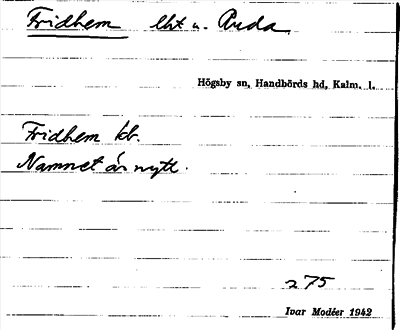 Fridhem lht u. Ruda
Högsby sn, Handbörds hd, Kalm. l.
Fridhem kb.
Namnet är nytt.
275
Ivar Modéer 1942